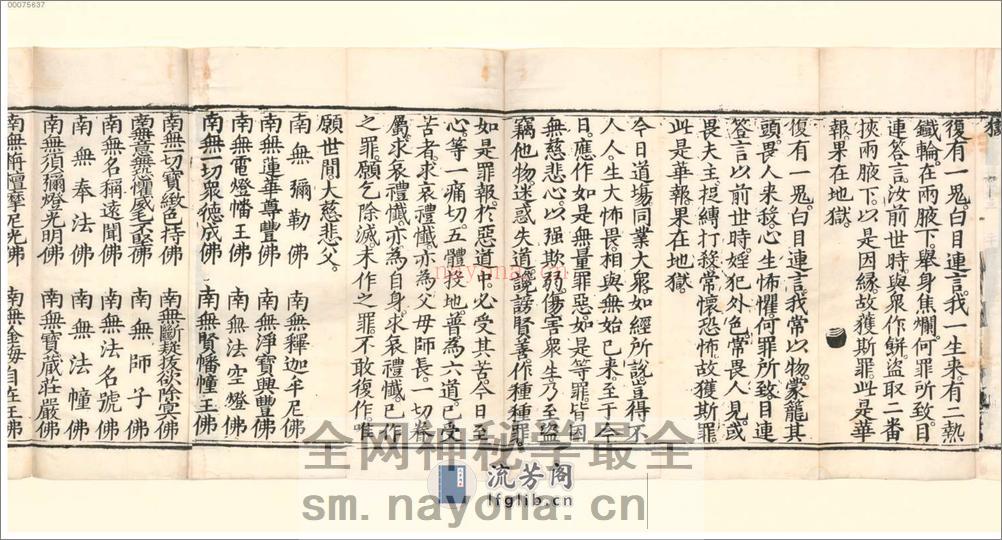 00075637
復有一鬼。白目連言。我一生來。有二熱
鐵輪在兩腋下。舉身焦爛。何罪所致。目
連荅言。汝前世時。與衆作餅。盜取二番
挾兩腋下。以是因緣。故獲斯罪。此是華
報。果在地獄。
復有一鬼。白目連言。我常以物蒙籠其
頭。畏人來殺。心生怖懼。何罪所致。目連
荅言。以前世時。婬犯外色。常畏人見。或
畏夫主捉縛打殺。常懷恐怖。故獲斯罪
此是華報。果在地獄。
今日道場同業大衆。如經所說。豈得不
人人生大怖畏。相與無始已來。至于今
日。應作如是無量罪惡。如是等罪。皆因
無慈悲心。以強欺弱。傷害衆生。乃至盜
竊他物。迷惑失道。讒謗賢善。作種種罪。
如是罪報。於惡道中。必受其苦。今日至
心。等一痛切。五體投地。普為六道。已受
苦者。求哀禮懺。亦為父母師長。一切眷
屬。求哀禮懺。亦為自身。求哀禮懺。已作
之罪。願乞除滅。未作之罪。不敢復作。唯
願世間大慈悲父。
南無彌勒佛 南無釋迦牟尼佛
南無蓮華尊豐佛 南無淨寶興豐佛
南無電燈幡王佛 南無法空燈佛
南無一切衆德成佛 南無賢幡幢王佛
南無一切寶緻色持佛 南無斷疑拔欲除冥佛
南無意無懼威毛不豎佛 南無師子佛
南無名稱遠聞佛 南無法名號佛
南無奉法佛 南無法幢佛
南無須彌燈光明佛 南無寶藏莊嚴佛
南無栴檀摩尼光佛 南無金海自在王佛
nayona.cn
全网神秘学最全
流芳阁
lfglib.cn
sm.nayona.cn